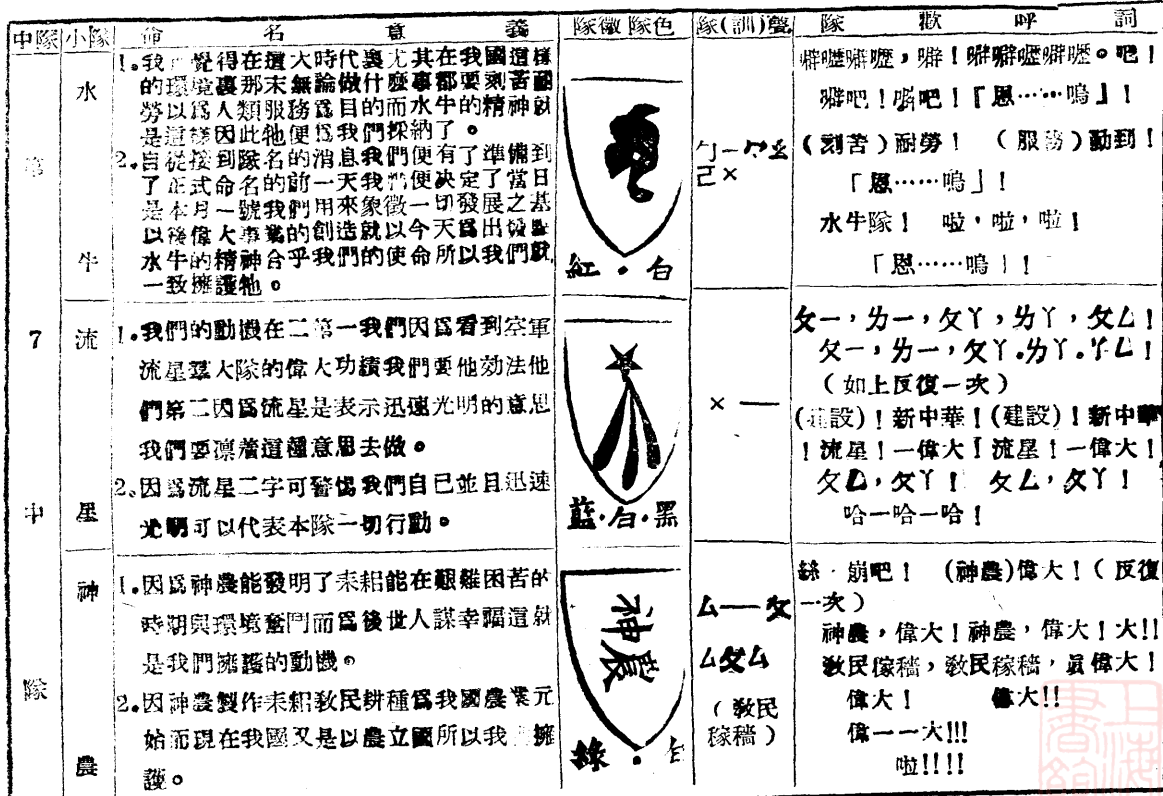 中隊 小隊 命名意義 隊徽隊色 隊(訓)聲 隊歡呼詞
第7中隊
水牛
1.我 覺得在這大時代裏尤其在我國這樣
的環境裏那末無論做什麼事都要刻苦耐
勞以爲人類服務爲目的而水牛的精神就
是這樣因此牠便爲我們採納了。
2.自從接到隊名的消息我們便有了準備到
了正式命名的前一天我們便決定了當日
是本月一號我們用來象徵一切發展之基
以後偉大事業的創造就以今天爲出發點
水牛的精神合乎我們的使命所以我們就
一致擁護牠。
紅·白
ㄅ一ㄅㄠ
ㄛㄨ
噼嚦噼嚦,噼!噼噼嚦噼嚦。吧!
噼吧!噼吧!「恩……嗚」!
(刻苦)耐勞! (服務)勸到!
「恩……嗚」!
水牛隊! 啦,啦,啦!
「恩……嗚」!
流星
1.我們的動機在二第一我們因爲看到空軍
流星羣大隊的偉大功績我們要他効法他
們第二因爲流星是表示迅速光明的意思
我們要凛着這種意思去做。
2.因爲流星二字可警惕我們自已並且迅速
光明可以代表本隊一切行動。
藍·白·黑
ㄨ 一
ㄆ一,ㄌ一,ㄆㄚ,ㄌㄚ,ㄆㄥ!
ㄆ一,ㄌ一,ㄆㄚ.ㄌㄚ.ㄆㄥ!
(如上反復一次)
(建設)!新中華!(建設)!新中華
!流星!一偉大!流星!一偉大!
ㄆㄥ,ㄆㄚ! ㄆㄥ,ㄆㄚ!
哈一哈一哈!
神農
1.因爲神農能發明了耒耜能在艱難困苦的
時期與環境奮鬥而爲後世人謀幸福這就
是我們擁護的動機。
2.因神農製作耒耜教民耕種爲我國農業元
始而現在我國又是以農立國所以我 擁
護。
神農
綠·白
ㄙ一ㄆ
ㄙㄆㄙ
(教民
稼穡)
絲·崩吧! (神農)偉大!(反復
一次)
神農,偉大!神農,偉大!大!!
教民稼穡,教民稼穡,眞偉大!
偉大! 偉大!!
偉一一大!!!
啦!!!!
上海書館